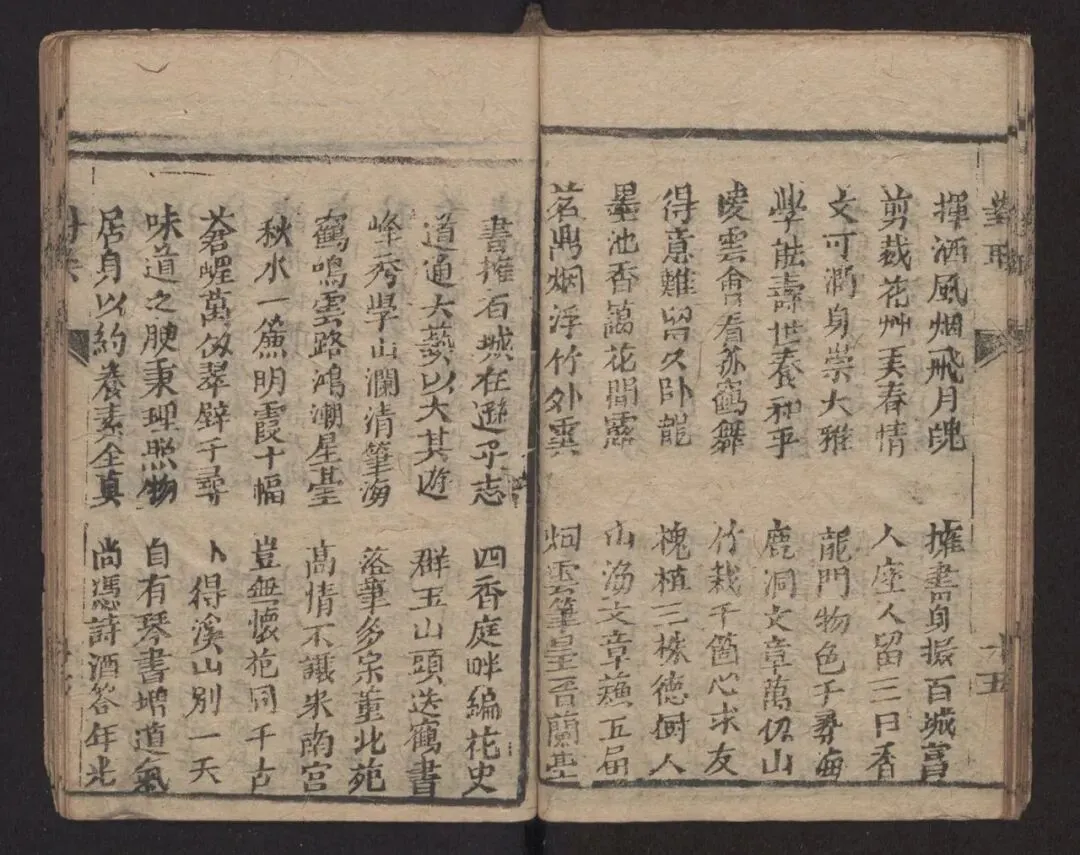 揮洒風烟飛月魄
剪裁花艸美春情
文可潤身崇大雅
學能壽世養和平
凌雲會看亦鶴舞
得意難留久卧龍
墨池香藹花間露
茗鼎烟浮竹外雲
擁書身擬百城富
人座人留三日香
龍門物色千尋海
鹿洞文章萬仞山
竹栽千箇心求友
槐植三株德樹人
山海文章蘓五
烟雲筆墨晋蘭亭
書擁百城在遜乎志
道通大藝以大其遊
峰秀學山瀾清筆海
鶴鳴雲路鴻潮星臺
秋水一簾明霞十幅
蒼崖萬仞翠壁千尋
味道之腴秉理照物
居身以約養素全真
四香庭畔編花史
群玉山頭送鶴書
落筆多宗董北苑
高情不讓米南宮
豈無懷抱同千古
卜得溪山別一天
自有琴書增道氣
尚憑詩酒答年光